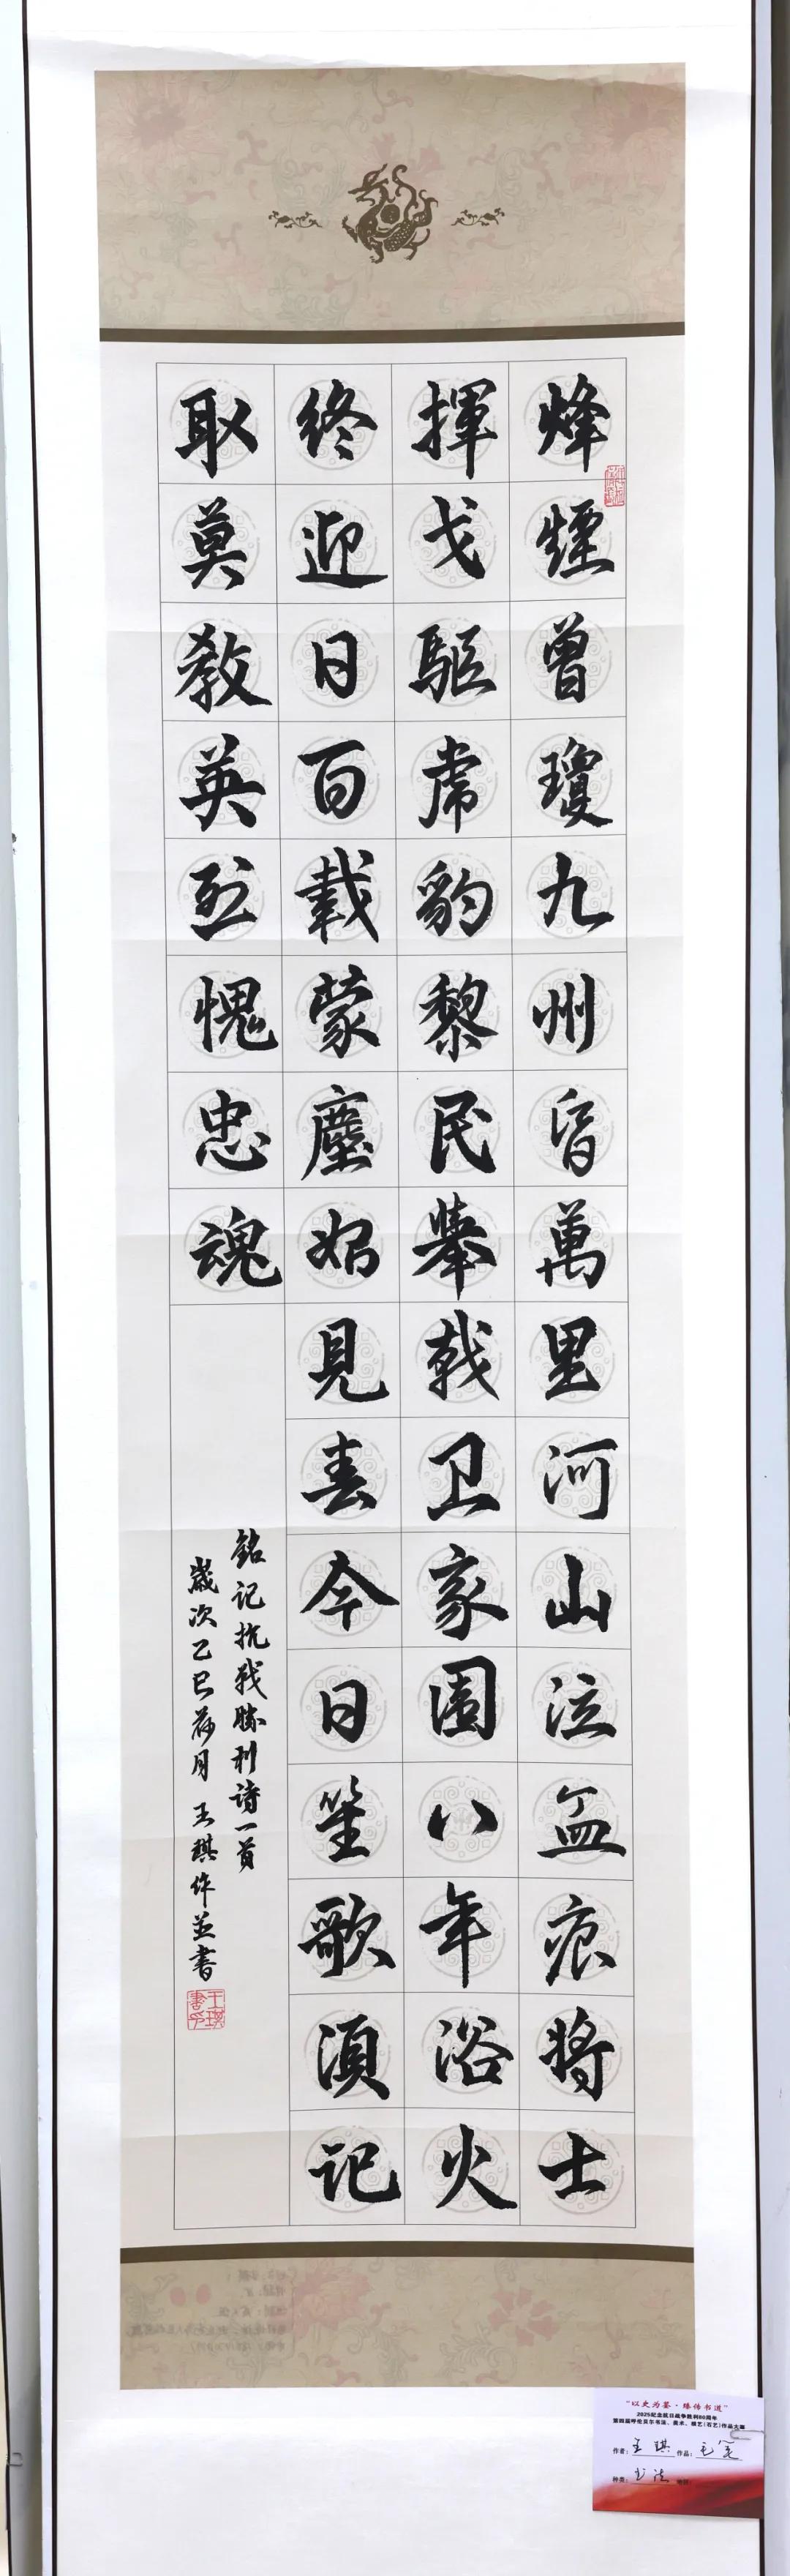 烽煙曾瓊九州昏萬里河山泣血痕将士
揮戈驅虎豹黎民舉戟卫家園八年浴火
終迎日百載蒙塵始見春今日笙歌須记
取莫教英烈愧忠魂
銘记抗戰勝利詩一首
歲次乙巳荷月 王琪作並書
王琪書印
“以史为鉴·臻传书道”
2025纪念抗日战争胜利80周年
第四届呼伦贝尔书法、美术、根艺(石艺)作品大赛
作者：王琪 作品：毛笔
种类：书法 电话：